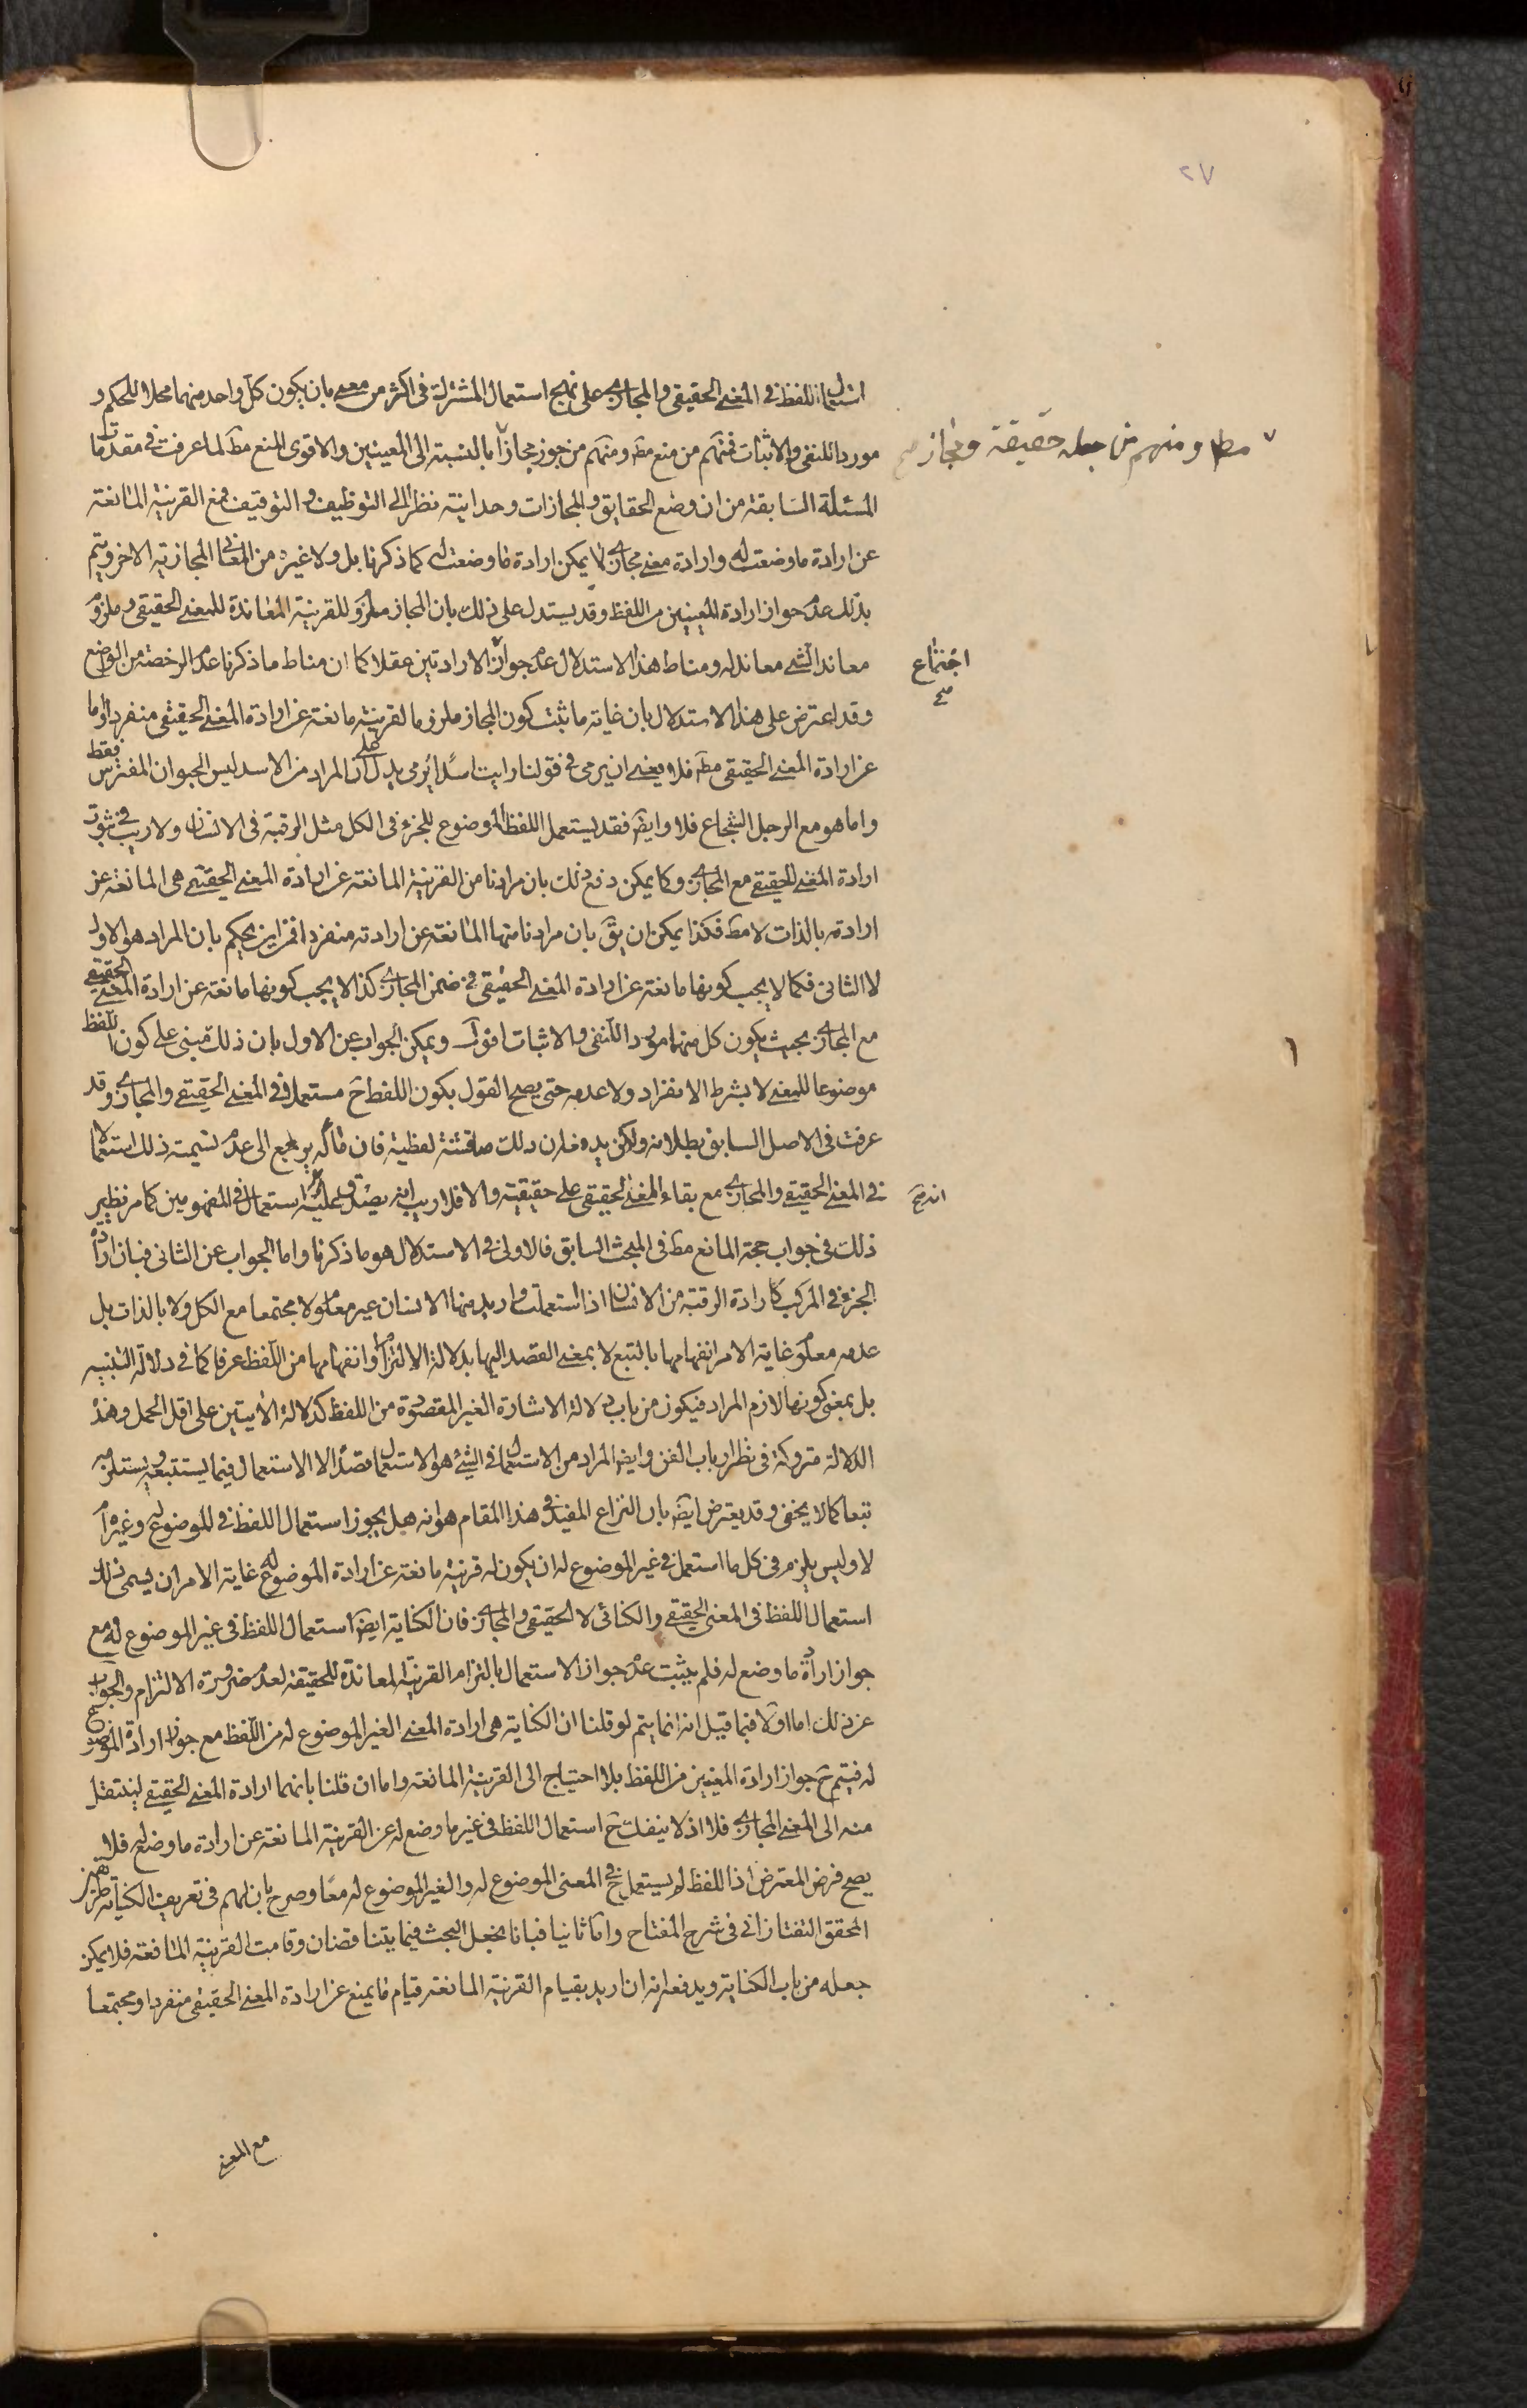 ٢٧
استعمال اللفظ فى المعنى الحقيقى والمجازى على نهج استعمال المشترك فى اكثر من معنى بان يكون كل واحد منهما محلا للحكم و
موردا للنفى والاثبات فمنهم من منع مط ومنهم من جوز مجازا بالنسبة الى المعنيين والاقوى المنع مط لما عرفت فى مقدمات
مط ومنهم من جعله حقيقة ومجاز صح
المسئلة السابقة من ان وضع الحقايق والمجازات وحدانية نظرا الى التوظيف والتوقيف فمع القرينة المانعة
عن ارادة ما وضعت له وارادة معنى مجازى لا يمكن ارادة ما وضعت له كما ذكرنا بل ولا غيره من المعانى المجازية الاخر ويتم
بذلك عدم جواز ارادة المعنيين من اللفظ وقد يستدل على ذلك بان المجاز ملزوم للقرينة المعاندة للمعنى الحقيقى وملزوم
معاند الشئ معاند له ومناط هذا الاستدلال عدم جواز الارادتين عقلا كما ان مناط ما ذكرنا عدم الرخصة من الواضع
اجتماع صح
وقد اعترض على هذا الاستدلال بان غاية ما ثبت كون المجاز ملزوما لقرينة مانعة عن ارادة المعنى الحقيقى منفردا واما
عن ارادة المعنى الحقيقى مط فلا يعنى ان يرمى فى قولنا رايت اسدا يرمى يدل على ان المراد من الاسد ليس الحيوان المفترس فقط
واما هو مع الرجل الشجاع فلا وايض فقد يستعمل اللفظ الموضوع للجزء فى الكل مثل الرقبة فى الانسان ولا ريب فى ثبوت
ارادة المعنى الحقيقى مع المجازى وكما يمكن دفع ذلك بان مرادنا من القرينة المانعة عن ارادة المعنى الحقيقى هى المانعة عن
ارادته بالذات لا مط فكذا يمكن ان يق بان مرادنا منها المانعة عن ارادته منفردا فمن اين يحكم بان المراد هو الاول
لا الثانى فكما لا يجب كونها مانعة عن ارادة المعنى الحقيقى فى ضمن المجازى كذا لا يجب كونها مانعة عن ارادة المعنى الحقيقى
مع المجازى بحيث يكون كل منهما موردا للنفى والاثبات اقول ويمكن الجواب عن الاول بان ذلك مبنى على كون اللفظ
موضوعا للمعنى لا بشرط الانفراد ولا عدمه حتى يصح القول بكون اللفظ ح مستعملا فى المعنى الحقيقى والمجازى وقد
عرفت فى الاصل السابق بطلانه ولكن يدفعه ان ذلك مناقشة لفظية فان مآله يرجع الى عدم تسيمة ذلك استعمالا
فى المعنى الحقيقى والمجازى مع بقاء المعنى الحقيقى على حقيقيته والا فلا ريب انه يصدق عليه استعمال فى المفهومين كما مر نظير
ذلك فى جواب حجة المانع مط فى المبحث السابق فالاولى فى الاستدلال هو ما ذكرنا واما الجواب عن الثانى فبان ارادة
الجزء فى المركب كارادة الرقبة من الانسان اذا استعملت واريد منها الانسان غير معلوم لا مجتمعا مع الكل ولا بالذات بل
عدمه معلوم غاية الامر انفهامها بالتبع لا بمعنى القصد اليها بدلالة الالتزام وانفهامها من اللفظ عرفا كما فى دلالة التنبيه
بل بمعنى كونها لازم المراد فيكون من باب دلالة الاشارة الغير المقصودة من اللفظ كدلالة الايتين على اقل الحمل وهذه
الدلالة متروكة فى نظر ارباب الفن وايض المراد من الاستعمال فى الشئ هو الاستعمال قصدا لا الاستعمال فيما يستتبعه ويستلزمه
تبعا كما لا يخفى وقد يعترض ايض بان النزاع المفيد فى هذا المقام هو انه هل يجوز استعمال اللفظ فى الموضوع له وغيره ام
لا وليس يلزم فى كل ما استعمل فى غير الموضوع له ان يكون له قرينة مانعة عن ارادة الموضوع له غاية الامر ان يسمى ذلك
استعمال اللفظ فى المعنى الحقيقى والكنائى لا الحقيقى والمجازى فان الكناية ايض استعمال اللفظ فى غير الموضوع له مع
جواز ارادة ما وضع له فلم يثبت عدم جواز الاستعمال بالتزام القرينة المعاندة للحقيقة لعدم ضرورة الالتزام والجواب
عن ذلك اما اولا فبما قيل انه انما يتم لو قلنا ان الكناية هى ارادة المعنى الغير الموضوع له من اللفظ مع جواز ارادة الموضوع
له فيتم ح جواز ارادة المعنيين من اللفظ بلا احتياج الى القرينة المانعة واما ان قلنا بانها ارادة المعنى الحقيقى لينتقل
منه الى المعنى المجازى فلا اذ لا ينفك ح استعمال اللفظ فى غير ما وضع له عن القرينة المانعة عن ارادة ما وضع له فلا
يصح فرض المعترض اذ اللفظ لم يستعمل ح فى المعنى الموضوع له والغير الموضوع له معا وصرح بان لهم فى تعريف الكناية طريقين
المحقق التفتازانى فى شرح المفتاح واما ثانيا فبانا نجعل البحث فيما يتناقضان وقامت القرينة المانعة فلا يمكن
جعله من باب الكناية ويدفعه انه ان اريد بقيام القرينة المانعة قيام ما يمنع عن ارادة المعنى الحقيقى منفردا ومجتمعا
مع المعنى